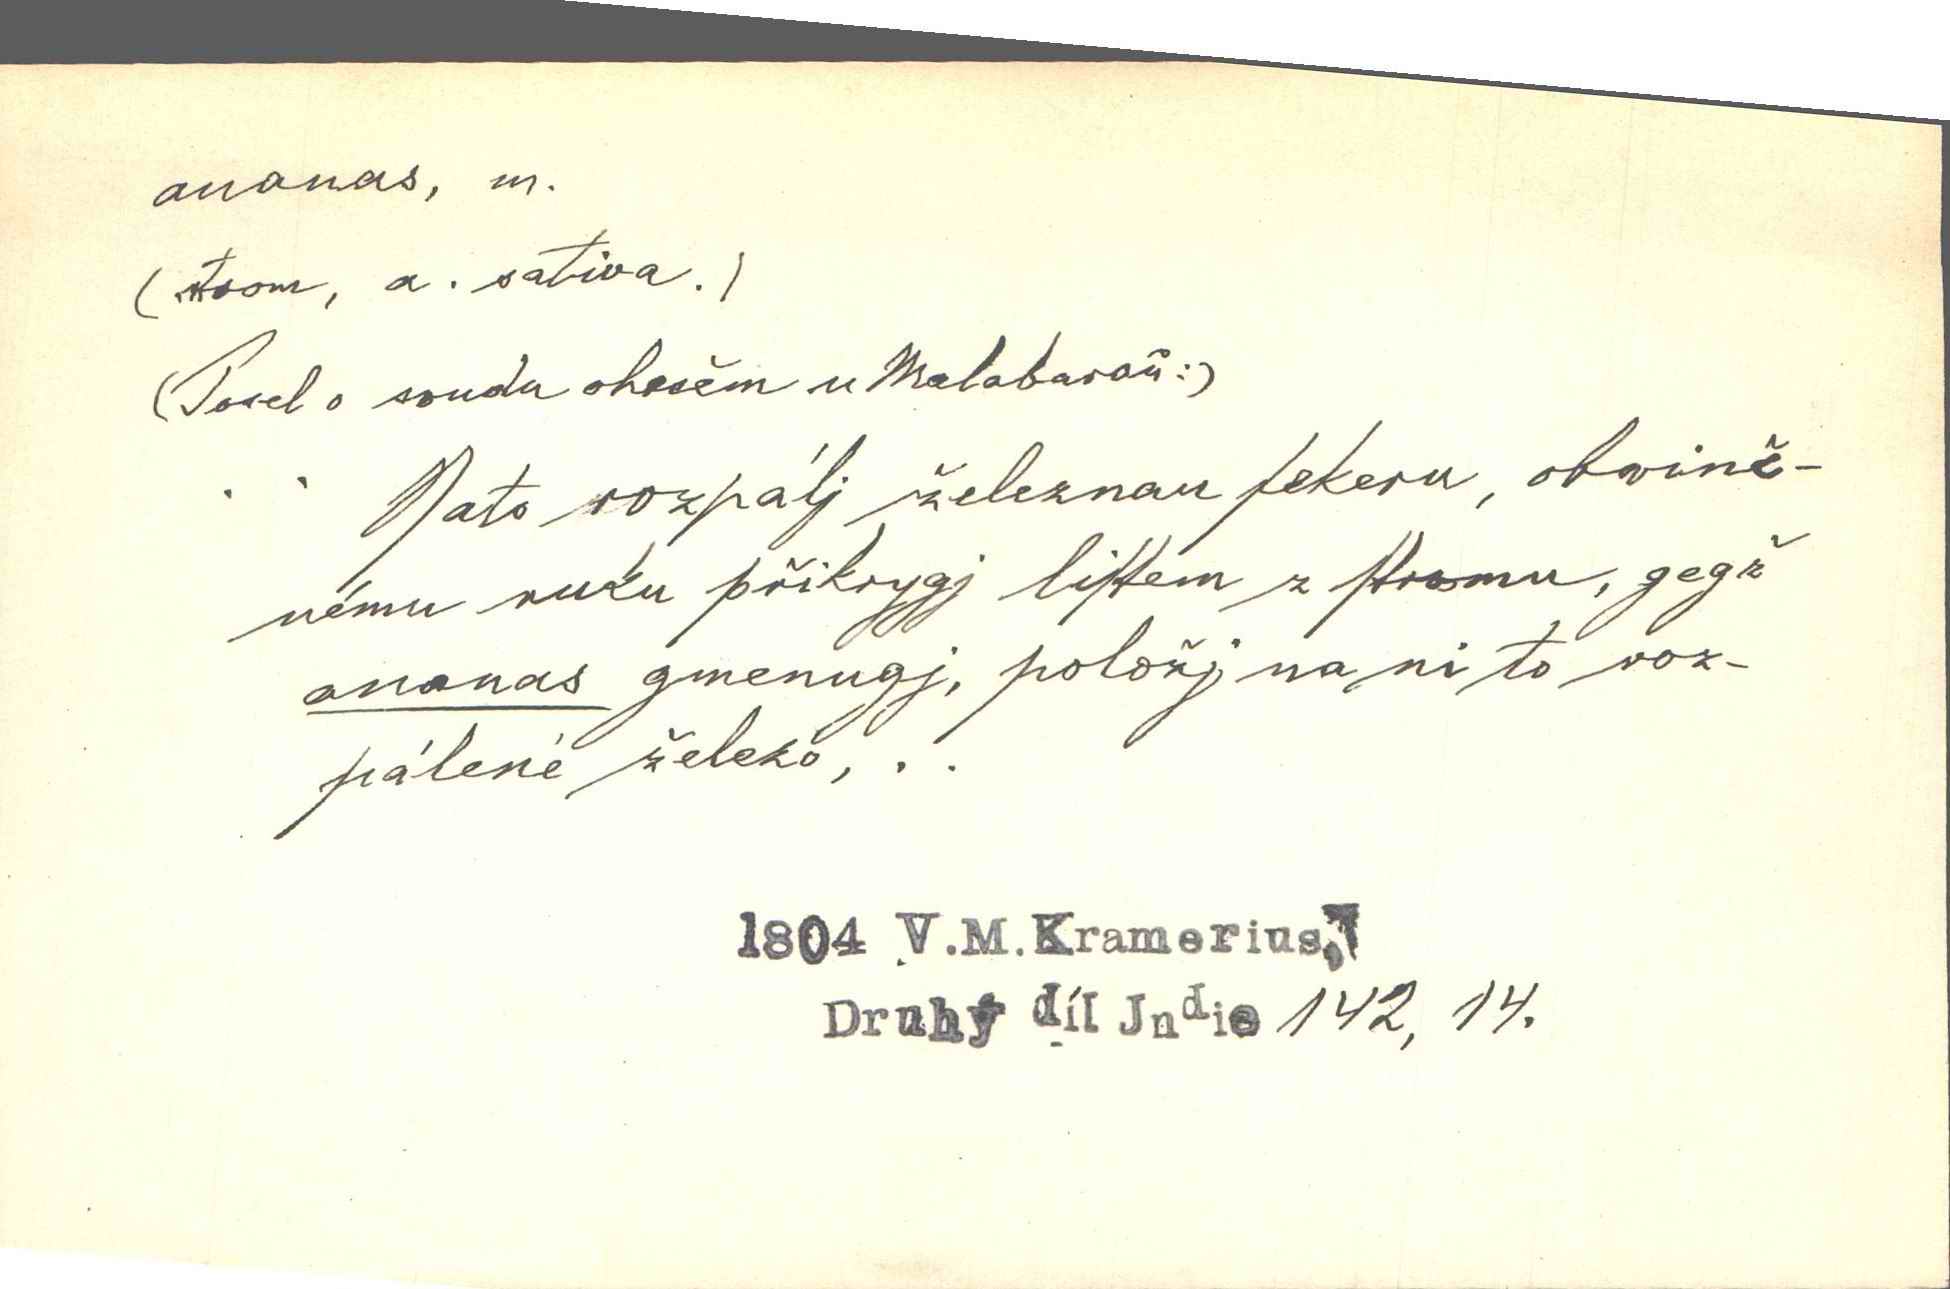 ananas, m.
(strom, a. sativa.)
(Posel o soudu ohněm u Malabarů:)
Nato rozpálj železnau ſekeru, obwině-
nému ruku přikrygj liſtem z ſtromu, gegž
ananas gmenugj, položj na ni to roz-
pálené železo, . .
1804 V.M.Kramerius,
Druhý díl Jndie 142, 14.